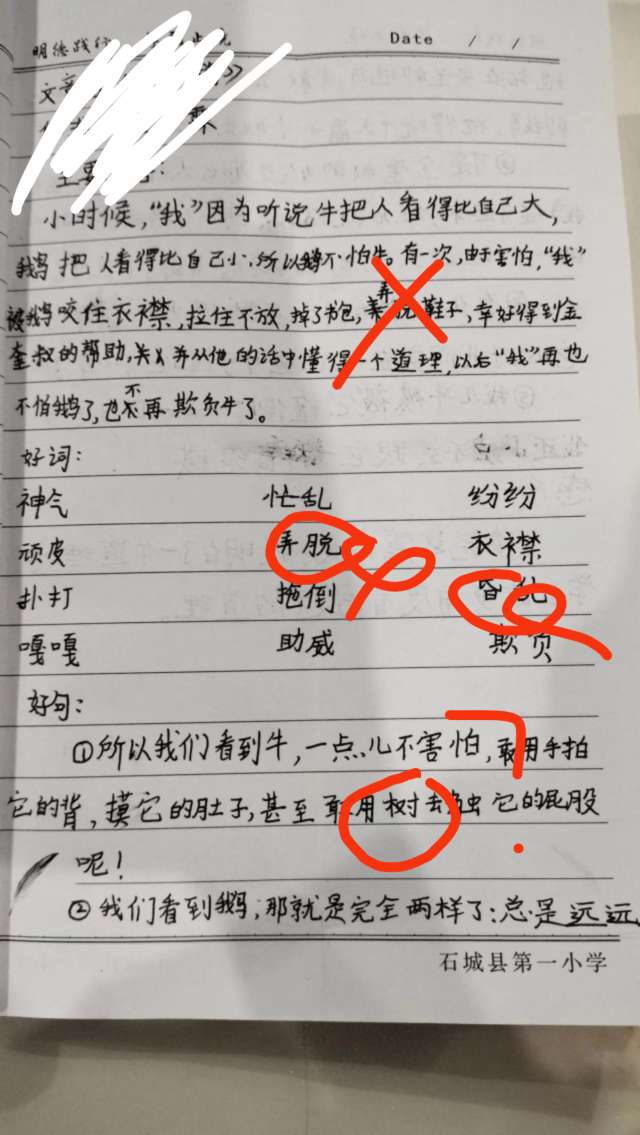 明德践行
Date / /
文章
主要
小时候，“我”因为听说牛把人看得比自己大，
鹅把人看得比自己小，所以鹅不怕牛。有一次，由于害怕，“我”
被鹅咬住衣襟，拉住不放，掉了书包，弄脱鞋子，幸好得到金
奎叔的帮助，并从他的话中懂得一个道理，以后“我”再也
不怕鹅了，也不再欺负牛了。
好词：
神气 忙乱 纷纷
顽皮 弄脱 衣襟
扑打 拖倒 昏乱
嘎嘎 助威 欺负
好句：
①所以我们看到牛，一点儿不害怕，敢用手拍
它的背，摸它的肚子，甚至敢用树去触它的屁股
呢！
②我们看到鹅，那就是完全两样了：总是远远
石城县第一小学